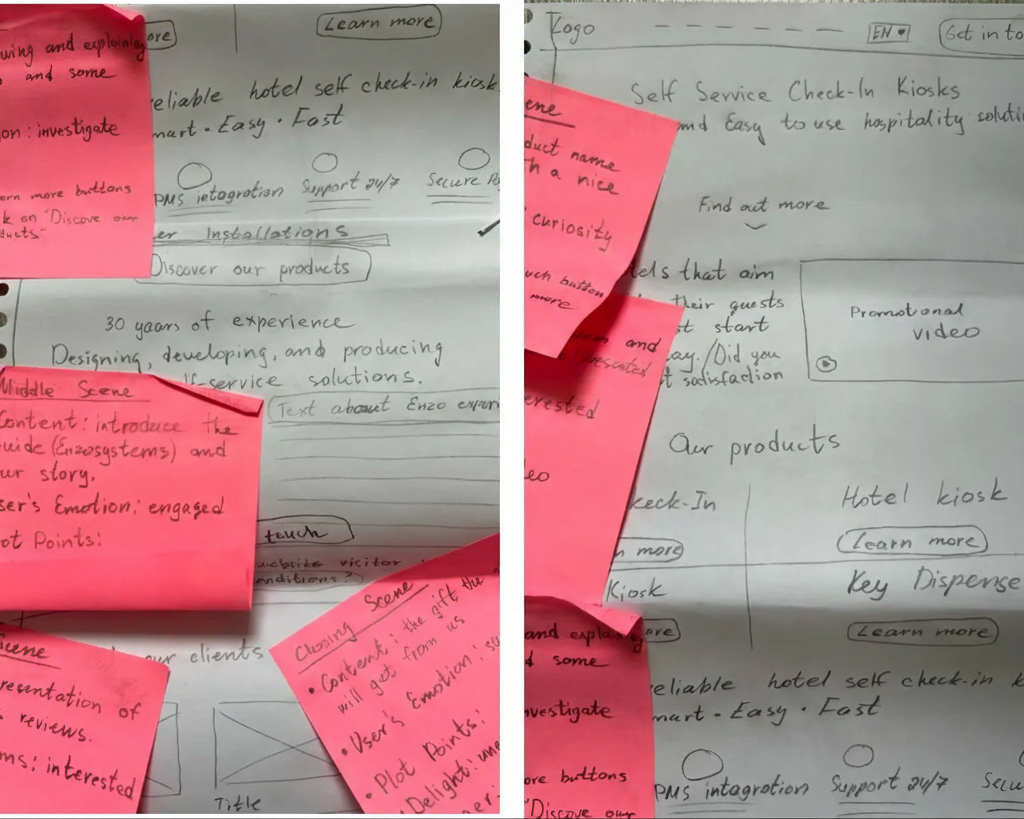 Learn more
wing and explaining
and some
on: investigate
rn more buttons
k on "Discove our
ucts"
eliable hotel self check-in kiosk
mart - Easy · Fast
PMS intagration
Support 24/7
Secure Pa
er Installations
Discover our products
30 yaars of experience
Designing, developing, and producing
lf-service solutions.
Text about Enzo exper
Middle Scene
Content: introduce the
uide (Enzosystems) and
ur story.
ser's Emotion: engaged
ot Points:
touch
website visitor
onditions?
our clients
Scene
resentation of
reviews.
ms: interested
Title
Closing Scene
• Content: the gift the
will get from us
• User's Emotion: su
• Plot Points:
Delight: une
Logo
EN
Get in to
Self Service Check-In Kiosks
and Easy to use hospitality soluti
ene
duct name
h a nice
curiosity
uch button
more
Find out more
tels that aim
their guests
st start
ay. Did you
t satisfaction
Promotional
video
and
presented
erested
eo
Our products
heck-In
Hotel kiosk
n more
Learn more
Kiosk
Key Dispense
and explaing
ore
Learn more
d some
nvestigate
ore buttons
"Discove our
eliable hotel self check-in k
mart - Easy · Fast
PMS intagration
Support 24/7
Secu